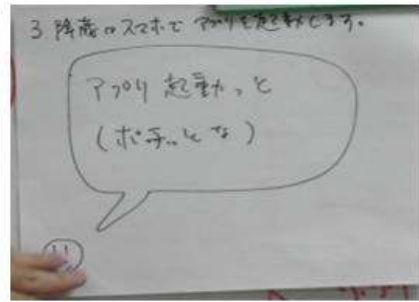 3 隆蔵のスマホで アプリを起動します。
アプリ 起動っと
(ポチっとな)